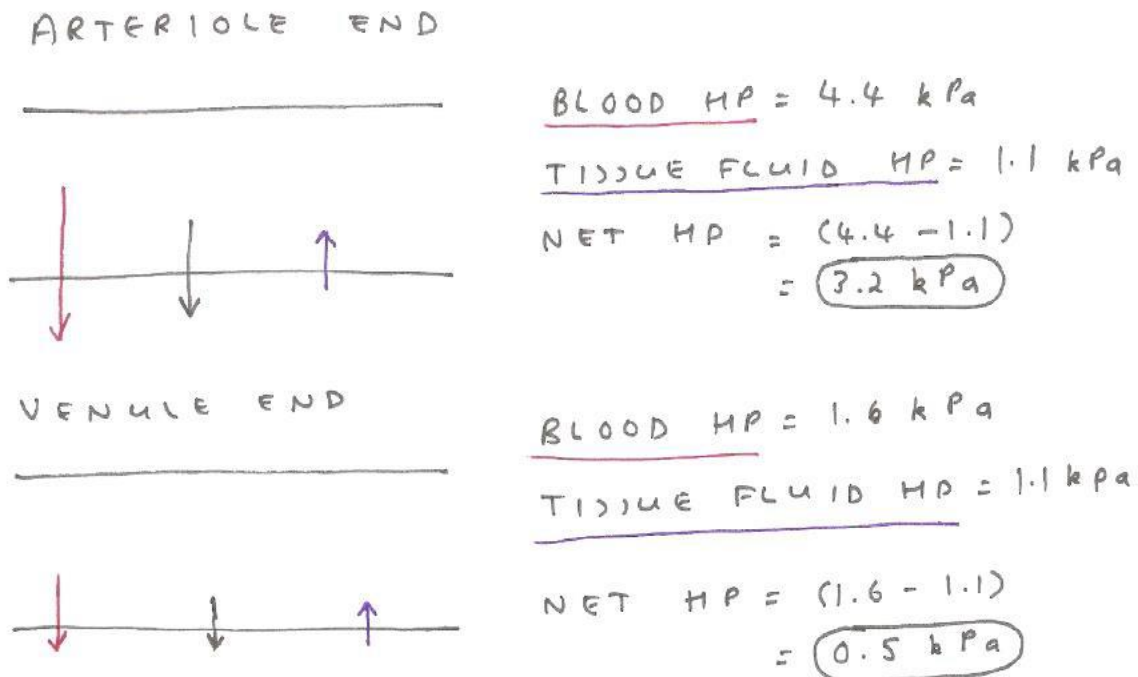 ARTERIOLE END
BLOOD HP = 4.4 kPa
TISSUE FLUID HP = 1.1 kPa
NET HP = (4.4 - 1.1)
= 3.2 kPa
VENULE END
BLOOD HP = 1.6 kPa
TISSUE FLUID HP = 1.1 kPa
NET HP = (1.6 - 1.1)
= 0.5 kPa